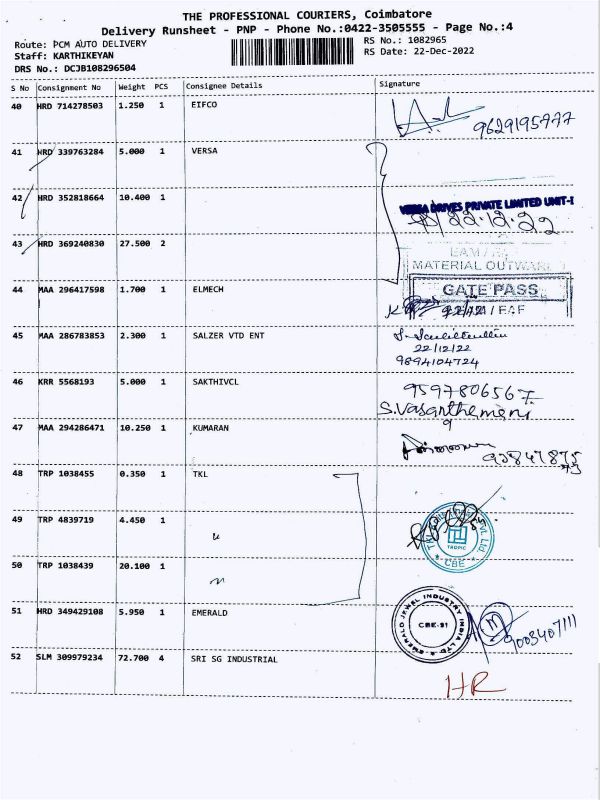 THE PROFESSIONAL COURIERS, Coimbatore
Delivery Runsheet - PNP - Phone No.:0422-3505555 - Page No.:4
Route: PCM AUTO DELIVERY
RS No.: 1082965
Staff: KARTHIKEYAN
RS Date: 22-Dec-2022
DRS No.: DCJB108296504
S No Consignment No Weight PCS Consignee Details Signature
40 HRD 714278503 1.250 1 EIFCO
9629195777
41 HRD 339763284 5.000 1 VERSA
42 HRD 352818664 10.400 1
VERSA DRIVES PRIVATE LIMITED UNIT-I
22.12.22
43 HRD 369240830 27.500 2
MATERIAL OUTWARD
GATE PASS
44 MAA 296417598 1.700 1 ELMECH
45 MAA 286783853 2.300 1 SALZER VTD ENT
22/12/22
9894104724
46 KRR 5568193 5.000 1 SAKTHIVCL
9597806567
S.Vasanthemeni
47 MAA 294286471 10.250 1 KUMARAN
48 TRP 1038455 0.350 1 TKL
49 TRP 4839719 4.450 1
TAOPIC
CBE
50 TRP 1038439 20.100 1
51 HRD 349429108 5.950 1 EMERALD
EMERALD JEWEL INDUSTRY INDIA LTD
CBE-91
9003407111
52 SLM 309979234 72.700 4 SRI SG INDUSTRIAL
HR